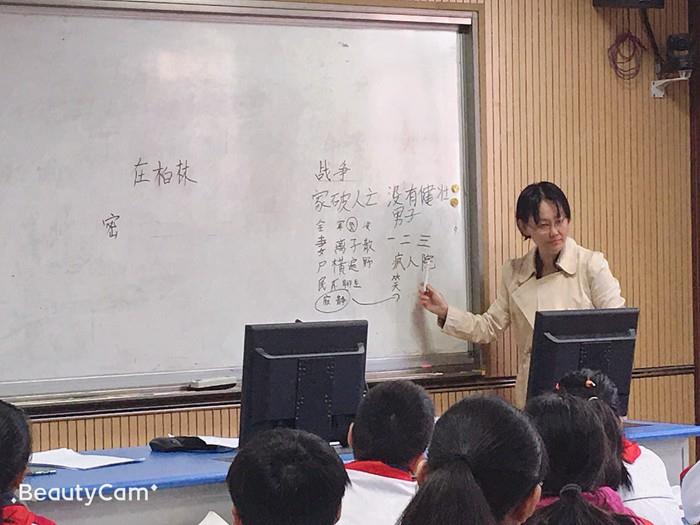 在柏林
密
战争
家破人亡 没有健壮
男子
全军覆没
妻离子散 一二三
尸横遍野 疯人院
民不聊生 笑
寂静
BeautyCam